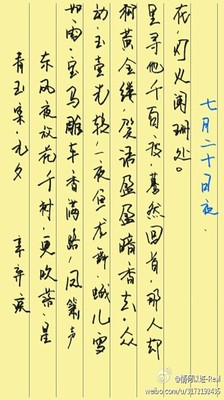 青玉案·元夕 辛弃疾
东风夜放花千树，更吹落，星
如雨。宝马雕车香满路。凤箫声
动，玉壶光转，一夜鱼龙舞。蛾儿雪
柳黄金缕，笑语盈盈暗香去。众
里寻他千百度，蓦然回首，那人却
在，灯火阑珊处。
七月二十日夜.
weibo.com/u/3172198435